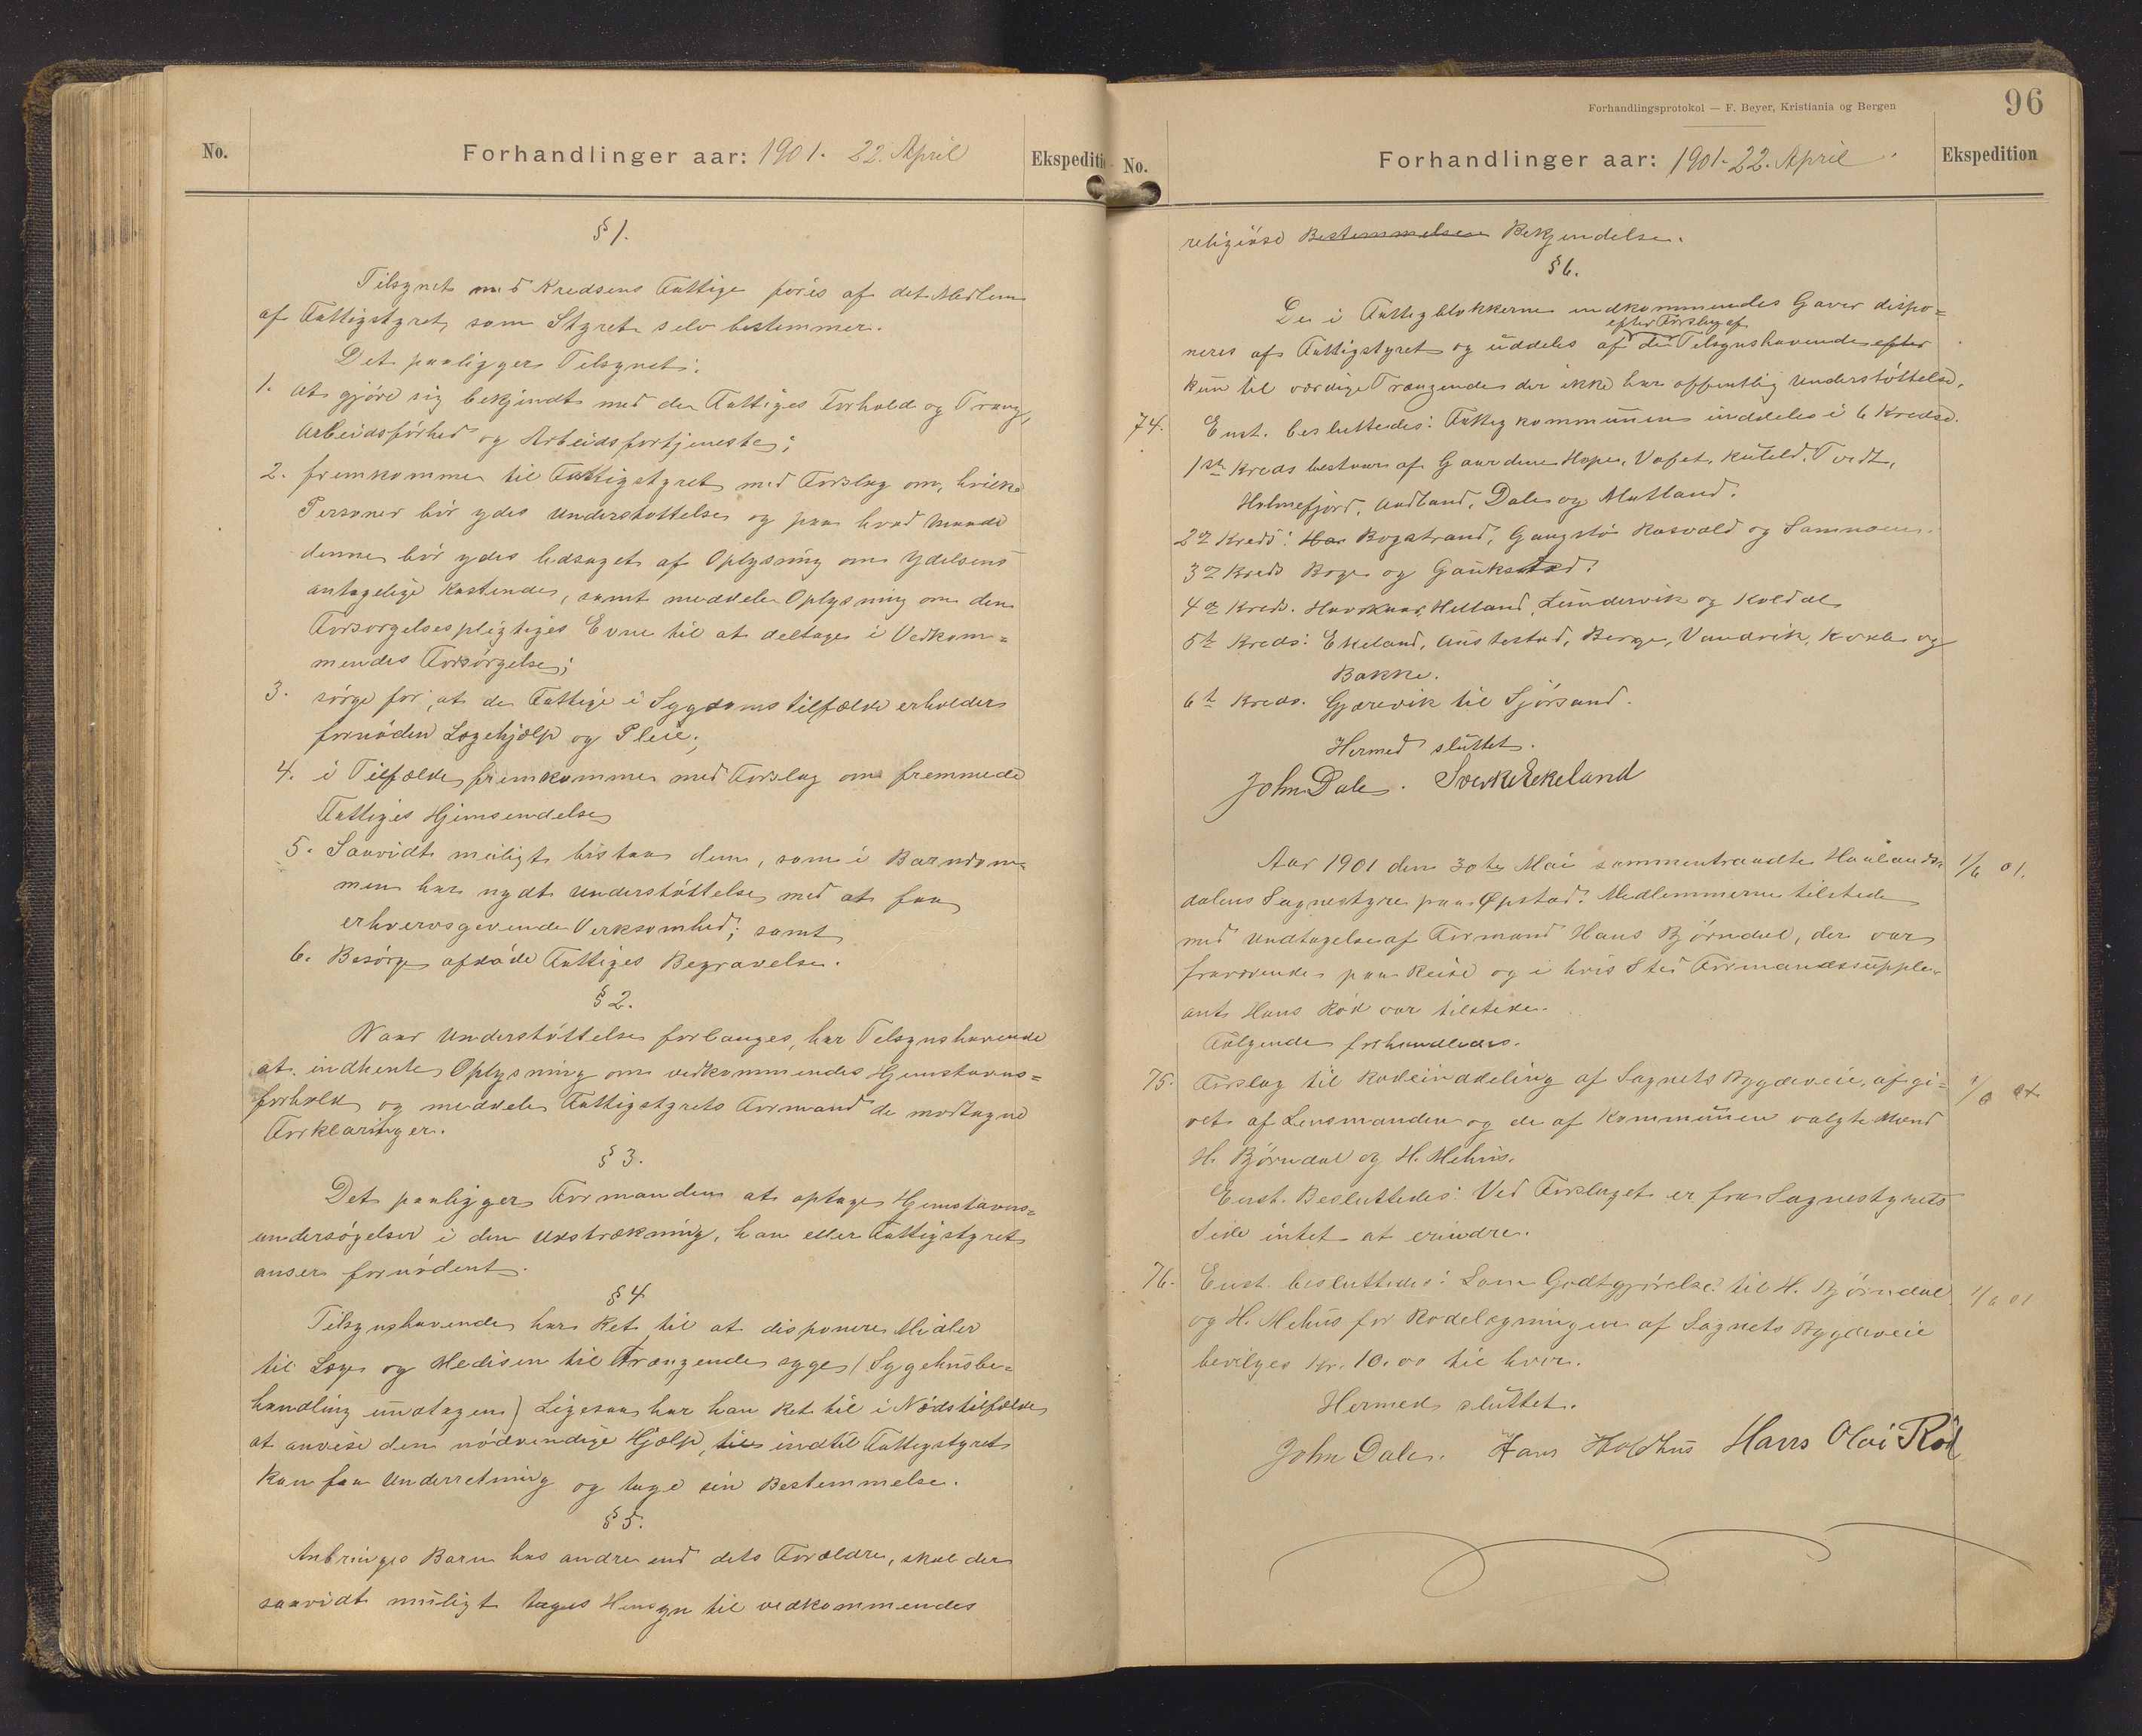 No. Forhandlinger aar: 1901. 22. April Ekspediti
§ 1.
Tilsynet med Kredsens Fattige föres af det Medlem
af Fattigstyret, som Styret selv bestemmer.
Det paaligger Tilsynet:
1. at gjöre sig bekjendt med de Fattiges Forhold og Trang,
Arbeidsförhed og Arbeidsfortjeneste;
2. fremkomme til Fattigstyret med Forslag om, hvilke
Personer bör ydes Understöttelse og paa hvad Maade
denne bör ydes ledsaget af Oplysning om Ydelsens
antagelige Kostende, samt meddele Oplysning om den
Forsorgelsespligtiges Evne til at deltage i Vedkom=
mendes Forsörgelse;
3. sörge for, at de Fattige i Sygdomstilfælde erholder
fornöden Lægehjælp og Pleie;
4. i Tilfælde fremkomme med Forslag om fremmede
Fattiges Hjemsendelse
5. Saavidt muligt bistaa dem, som i Barndom=
men har nydt Understöttelse med at faa
erhvervsgivende Verksomhed; samt
6. Besörge afdöde Fattiges Begravelse.
§ 2.
Naar Understöttelse forlanges, har Tilsynshavende
at indhente Oplysning om vedkommendes Hjemstavns=
forhold og meddele Fattigstyrets Formand de modtagne
Forklaringer.
§ 3.
Det paaligger Formanden at optage Hjemstavns=
undersögelser i den Udstrækning, han eller Fattigstyret
anser fornödent.
§ 4
Tilsynshavende har Ret til at disponere Midler
til Læge og Medisin til Trængende syge (Sygehusbe=
handling undtagen) Ligesaa har han Ret til i Nödstilfælde
at anvise den nödvendige Hjælp, til indtil Fattigstyret
kan faa Underretning og tage sin Bestemmelse.
§ 5.
Anbringes Barn hos andre end dets Forældre, skal der
saavidt muligt tages Hensyn til vedkommendes
Forhandlingsprotokol — F. Beyer, Kristiania og Bergen
96
No. Forhandlinger aar: 1901. 22. April. Ekspedition
religiöse Bestemmelser Bekjendelse.
§ 6.
De i Fattigblokkerne indkommende Gaver dispo=
efter Forslag af
neres af Fattigstyret og uddeles af de Tilsynshavende efter
kun til værdige Trængende der ikke har offentlig Understöttelse.
74. Enst. besluttedes: Fattigkommunen inddeles i 6 Kredse.
1ste Kreds bestaar af Gaardene Hope, Vafet, Kuteld, Tvedt,
Holmefjord, Aadland, Dale og Matland.
2den Kreds: Har Bogstrand, Gangstö Rasvald og Samnöen.
3de Kreds Boge og Gaukstad.
4de Kreds. Havskaar, Helland, Lundervik og Koldal
5te Kreds: Ekeland, Austestad, Berge, Vandvik, Koxle og
Bakke.
6te Kreds. Gjærevik til Sjösand.
Hermed sluttet.
John Dale. Sverke Ekeland
Aar 1901 den 30te Mai sammentraadte Haalands= 1/6 01.
dalens Sognestyre paa Öpstad. Medlemmerne tilstede
med Undtagelse af Formand Hans Björndal, der var
fraværende paa Reise og i hvis Sted Formandssupple=
ant Hans Röd var tilstede.
Fölgende forhandledes.
75. Forslag til Rodeinddeling af Sognets Bygdeveie, afgi=
vet af Lensmanden og de af Kommunen valgte Mænd
H. Björndal og H. Mehus.
Enst. Besluttedes: Ved Forslaget er fra Sognestyrets
Side intet at erindre.
76. Enst. besluttedes: Som Godtgjörelse til H. Björndal 1/6 01
og H. Mehus for Rodelægningen af Sognets Bygdeveie
bevilges Kr. 10.00 til hver.
Hermed sluttet.
John Dale. Hans Holdhus Hans Olai Röd